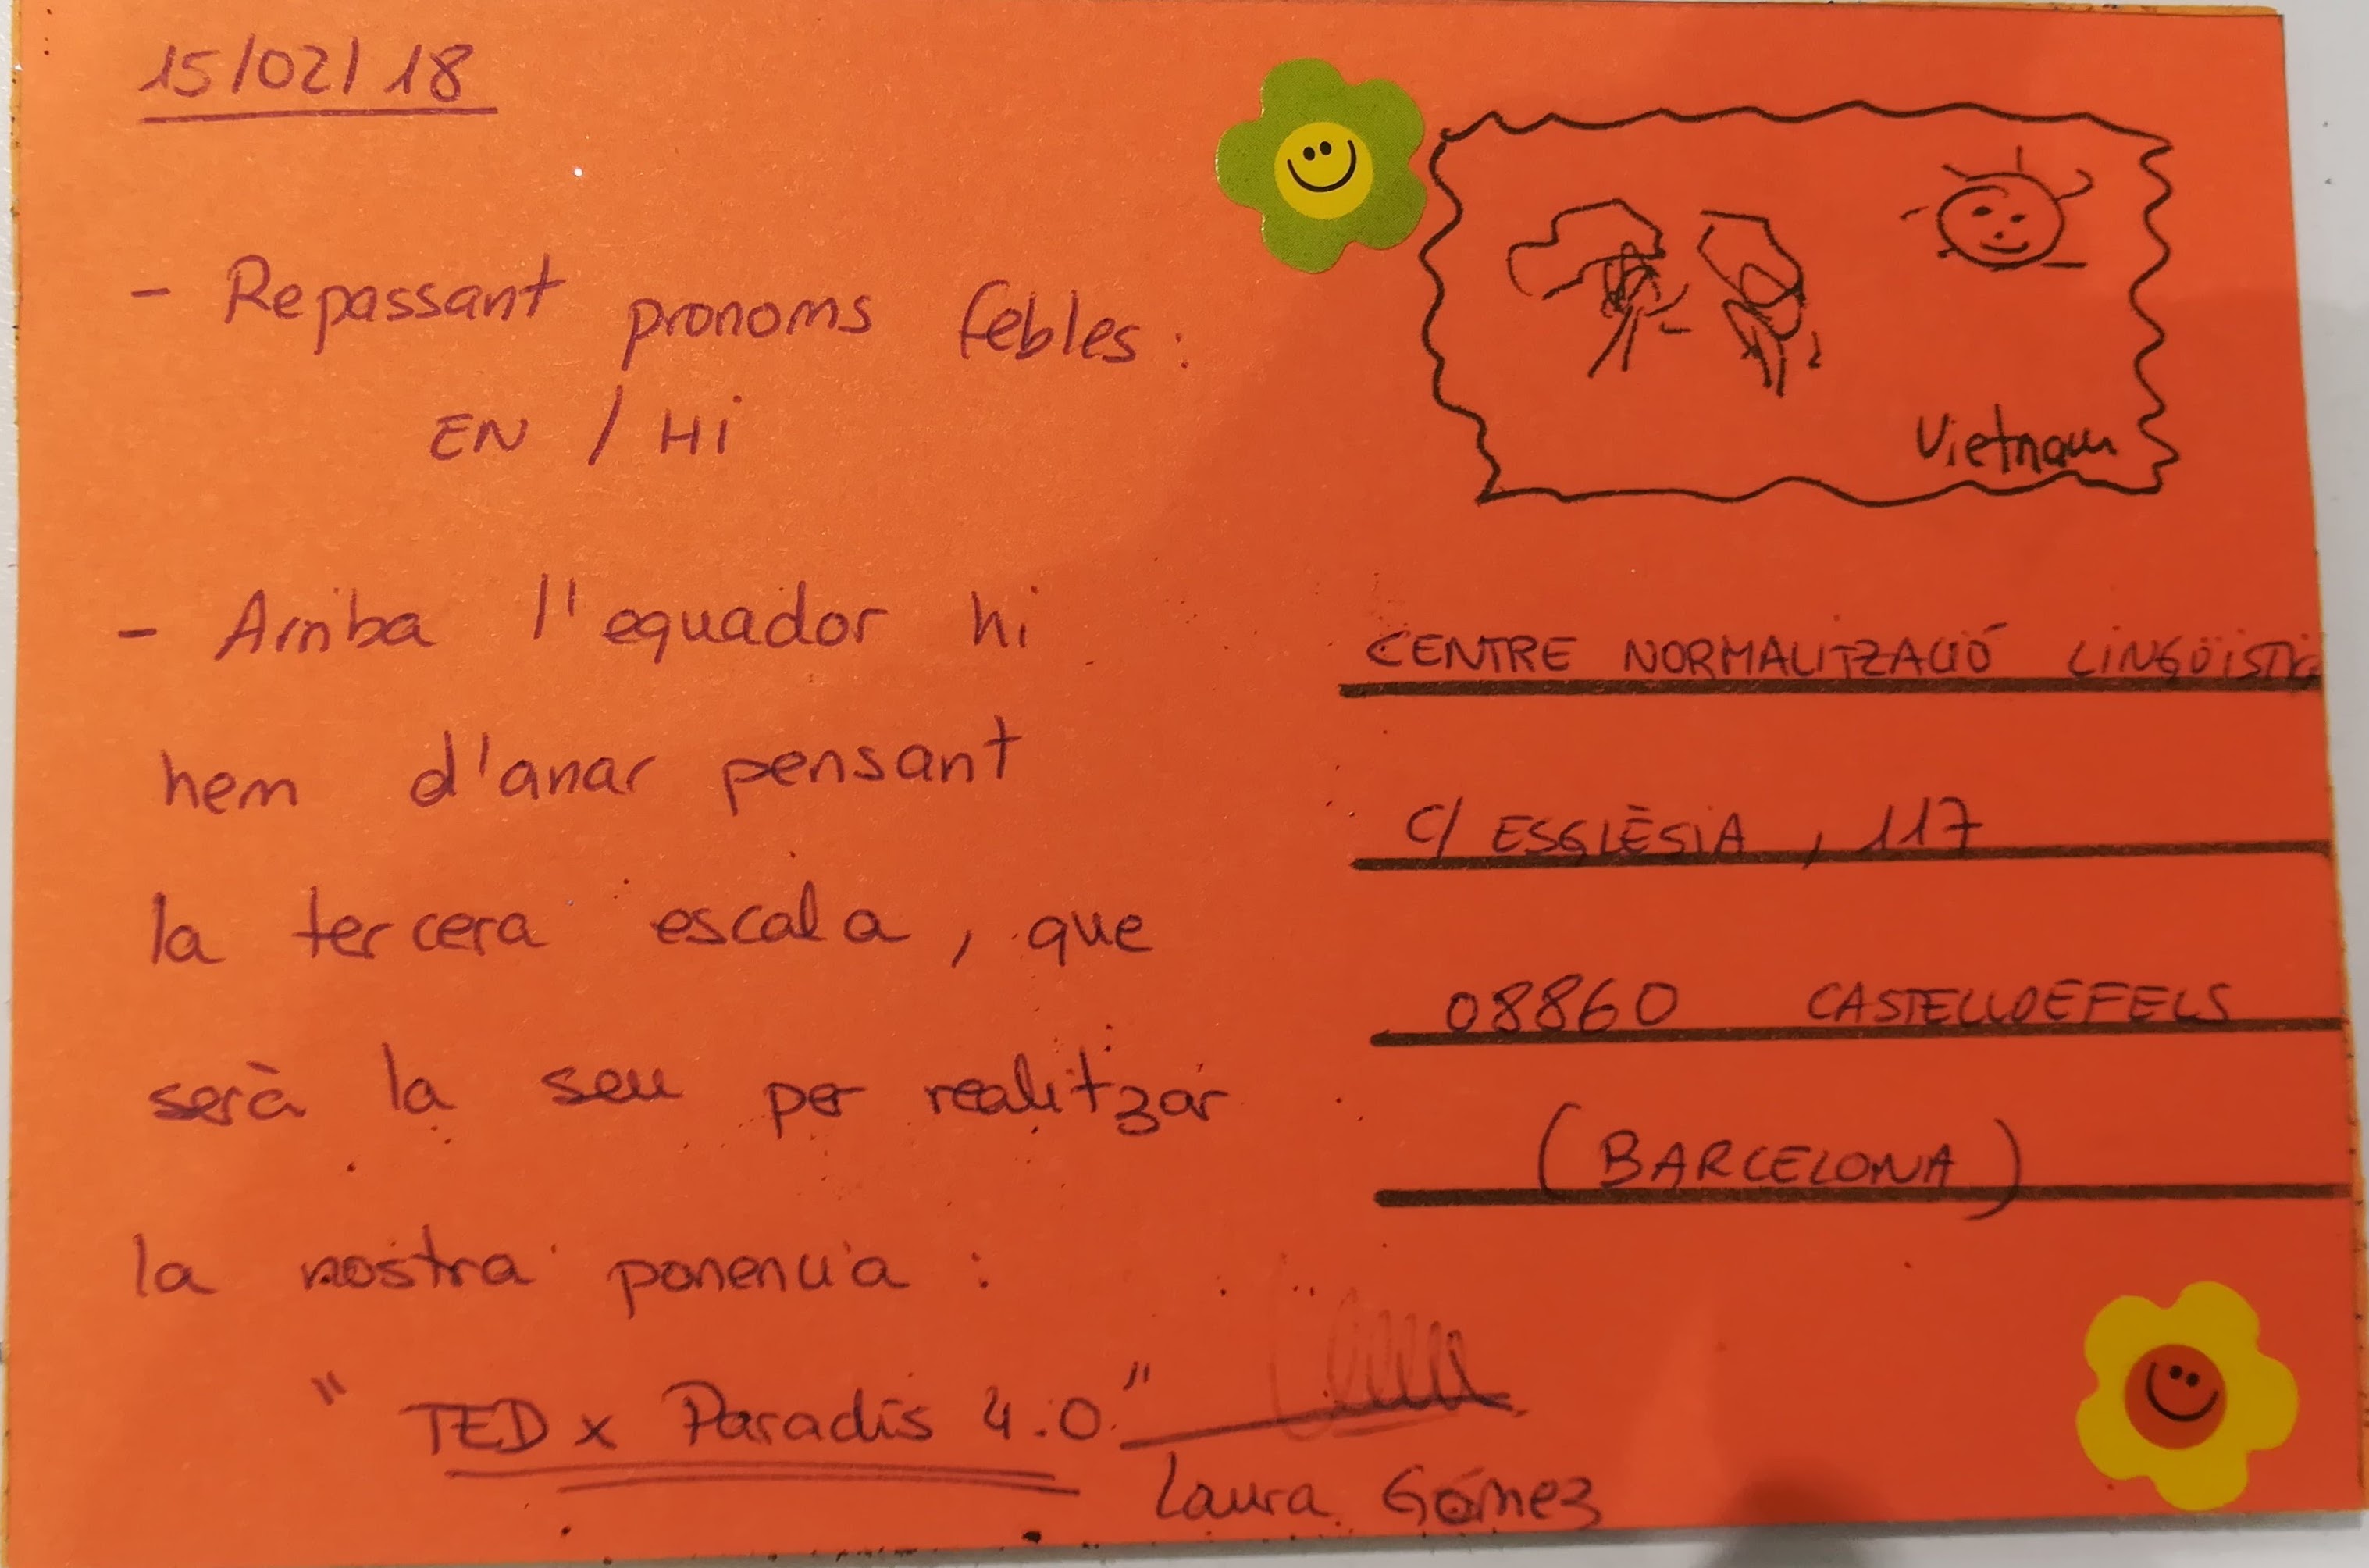 15/02/18
- Repassant pronoms febles:
EN / Hi
- Arriba l'equador hi
hem d'anar pensant
la tercera escala, que
serà la seu per realitzar
la nostra ponència:
"TEDx Paradís 4.0"
Laura Gómez
Vietnam
CENTRE NORMALITZACIÓ LINGÜÍSTIC
C/ ESGLÈSIA, 117
08860 CASTELLDEFELS
(BARCELONA)